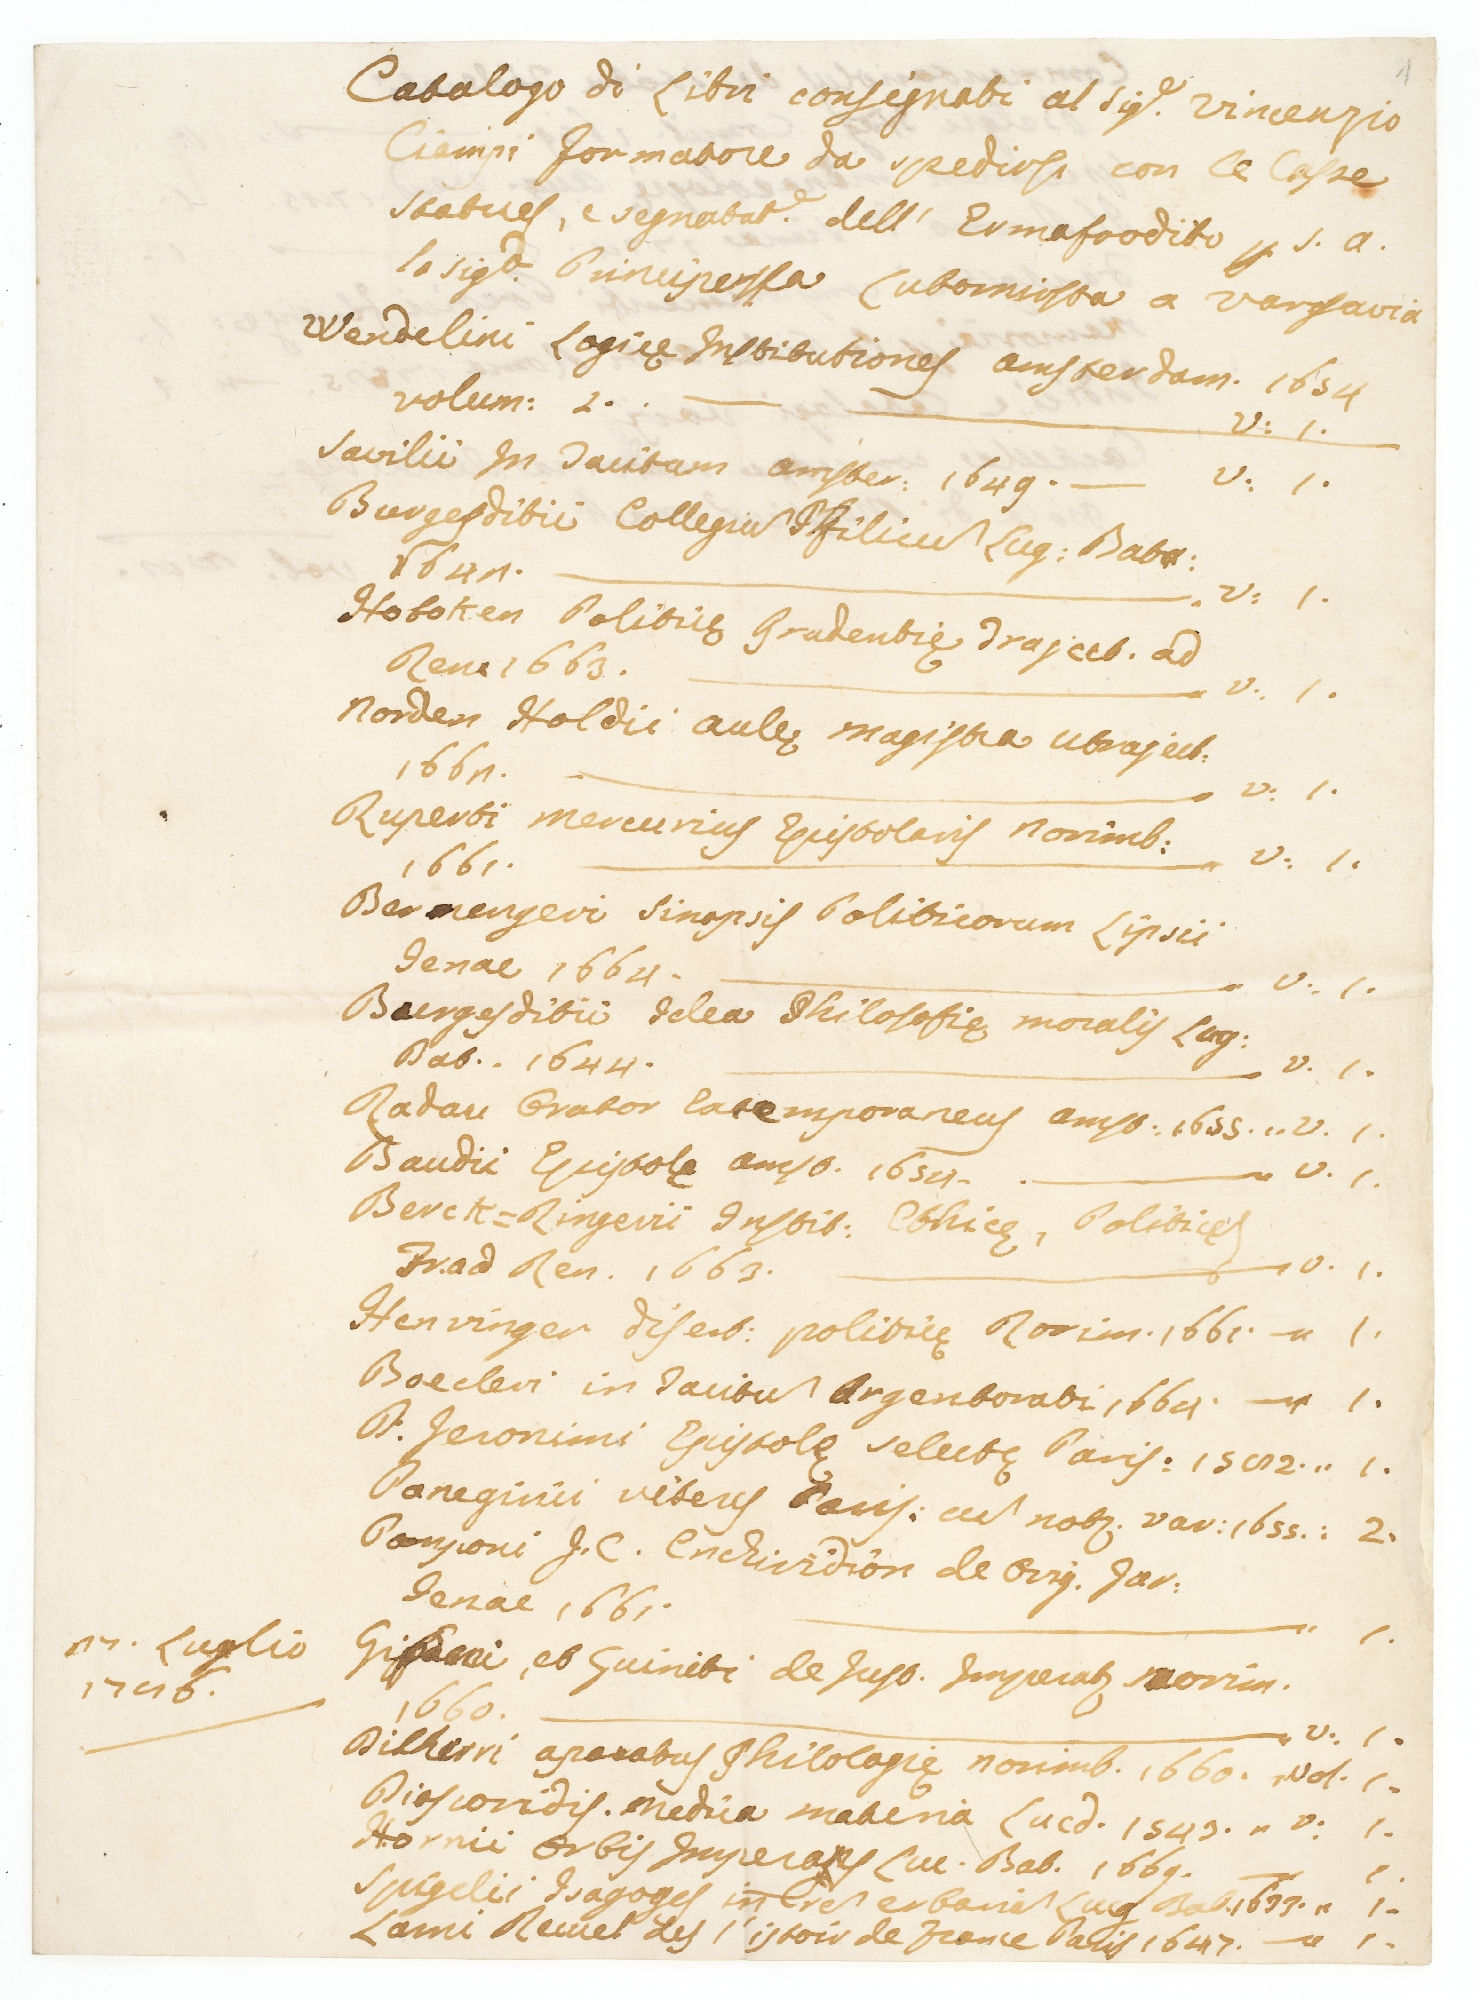 Catalogo di Libri consegnati al Sig.e Vincenzio
Ciempi formatore da spedirsi con le Casse
Statues, e segnatat.e dell' Ermafrodito p S. A.
la Sig.a Principessa Lubomirska a Varsavia
Wendelini Logicę Institutiones Amsterdam. 1654
volum: 2. — v: 1.
Savilii In Tacitum Amster: 1649. — v: 1.
Burgesditii Collegiu Lug: Bata:
v: 1.
Hoboken Politicę Prudentię Traject. ad
Ren. 1663. — v: 1.
Norden Holdii aulę magistra utraject:
v: 1.
Ruperti Mercurius Epistolaris Norimb:
1661. — v: 1.
Sinopsis Politicorum Lipsii
Jenae 1664. — v: 1.
Burgesditii Idea Philosofię moralis Lug:
Bat. 1644. — v. 1.
Radau Orator Extemporaneus Amst: 1655. „ v. 1.
Baudii Epistolę Amst. 1654. — v. 1.
Berck=Ringerii Instit: Ethicę, Politicęs
Tr. ad Ren. 1663. — v. 1.
Henvinger disert: politicę Norim. 1661. — „ 1.
Boecleri in Tacitu Argentorati, 1664. — „ 1.
P. Jeronimi Epistolę selectę Paris: „ 1.
Panegirici veteres Paris: cu notę. var: 1655. : 2.
Pomponi J. C. Enchiridion de Orig. Jur:
Jenae 1661. — „ 1.
17. Luglio
1776.
et Guiniti de Just. Imperat. Norim.
1660. — „ v: 1.
Dilherri aparatus Philologię Norimb. 1660. „ vol. 1.
Dioscoridis. Medica materia Lucd. 1543. „ v: 1.
Hornii Orbis Imperans Luc. Bat. 1669. — 1.
Spigelii Isagoges in re erbaria Lug Bat. 1633. „ 1.
Lami Recuel des l'istoir de France Paris 1647. — „ 1.